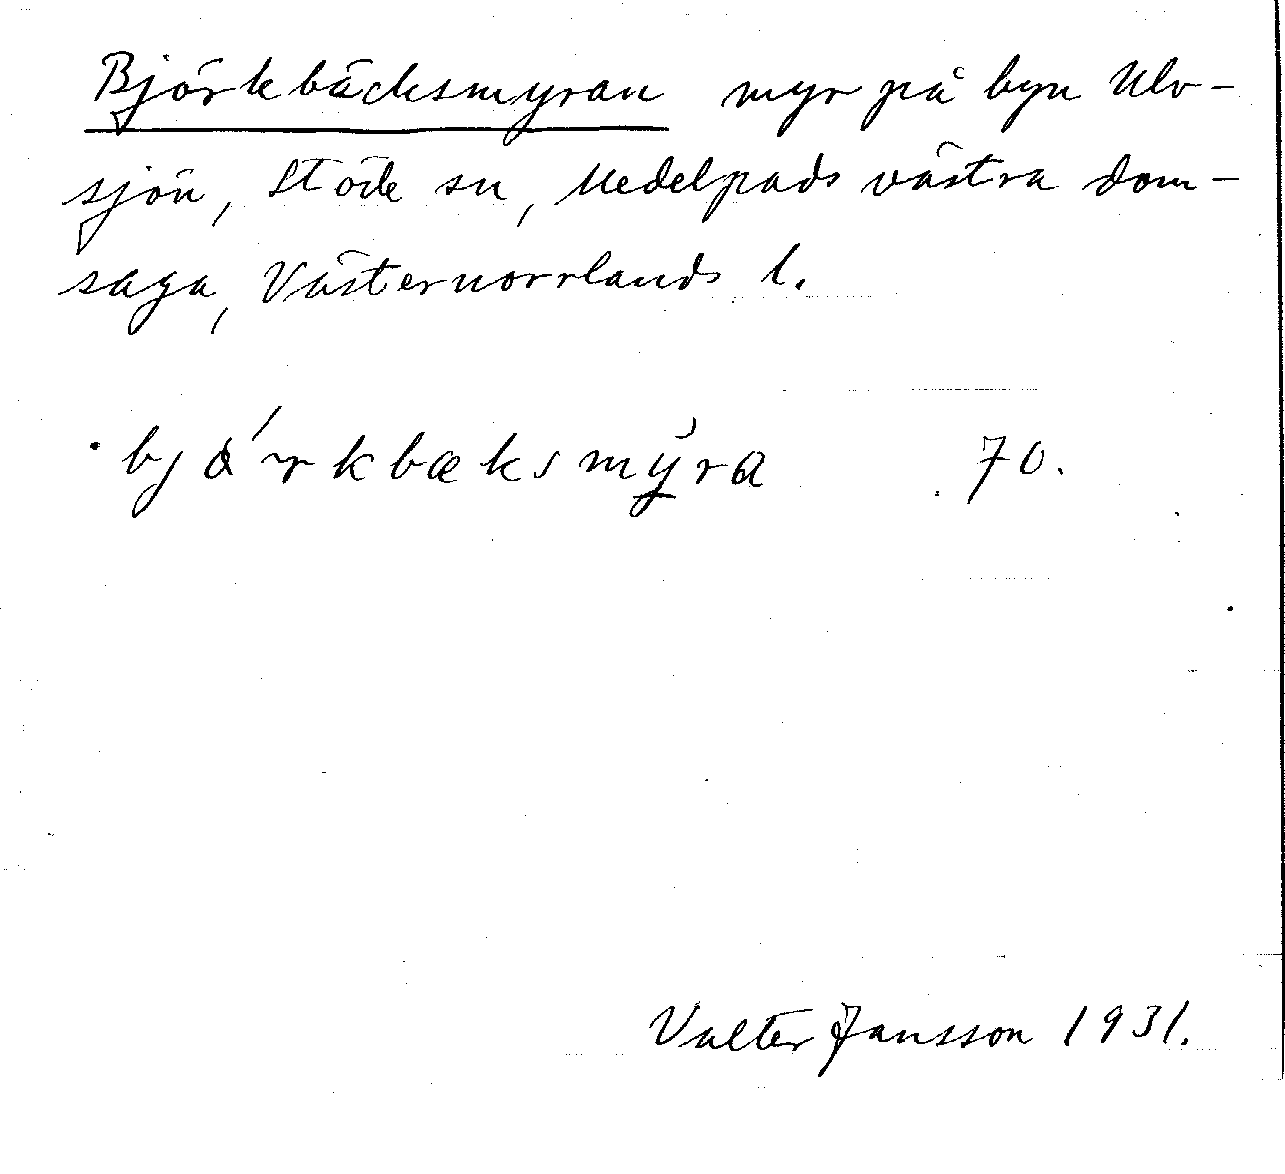 Björkbäcksmyran myr på byn Ulv-
sjön, Stöde sn, Medelpads västra dom-
saga, Västernorrlands l.
70.
Valter Jansson 1931.